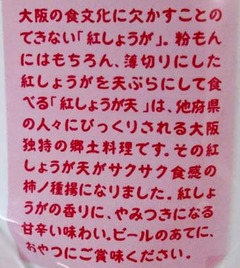 大阪の食文化に欠かすことの
できない「紅しょうが」。粉もん
にはもちろん、薄切りにした
紅しょうがを天ぷらにして食
べる「紅しょうが天」は、他府県
の人々にびっくりされる大阪
独特の郷土料理です。その紅
しょうが天がサクサク食感の
柿ノ種揚になりました。紅しょ
うがの香りに、やみつきになる
甘辛い味わい。ビールのあてに、
おやつにご賞味ください。